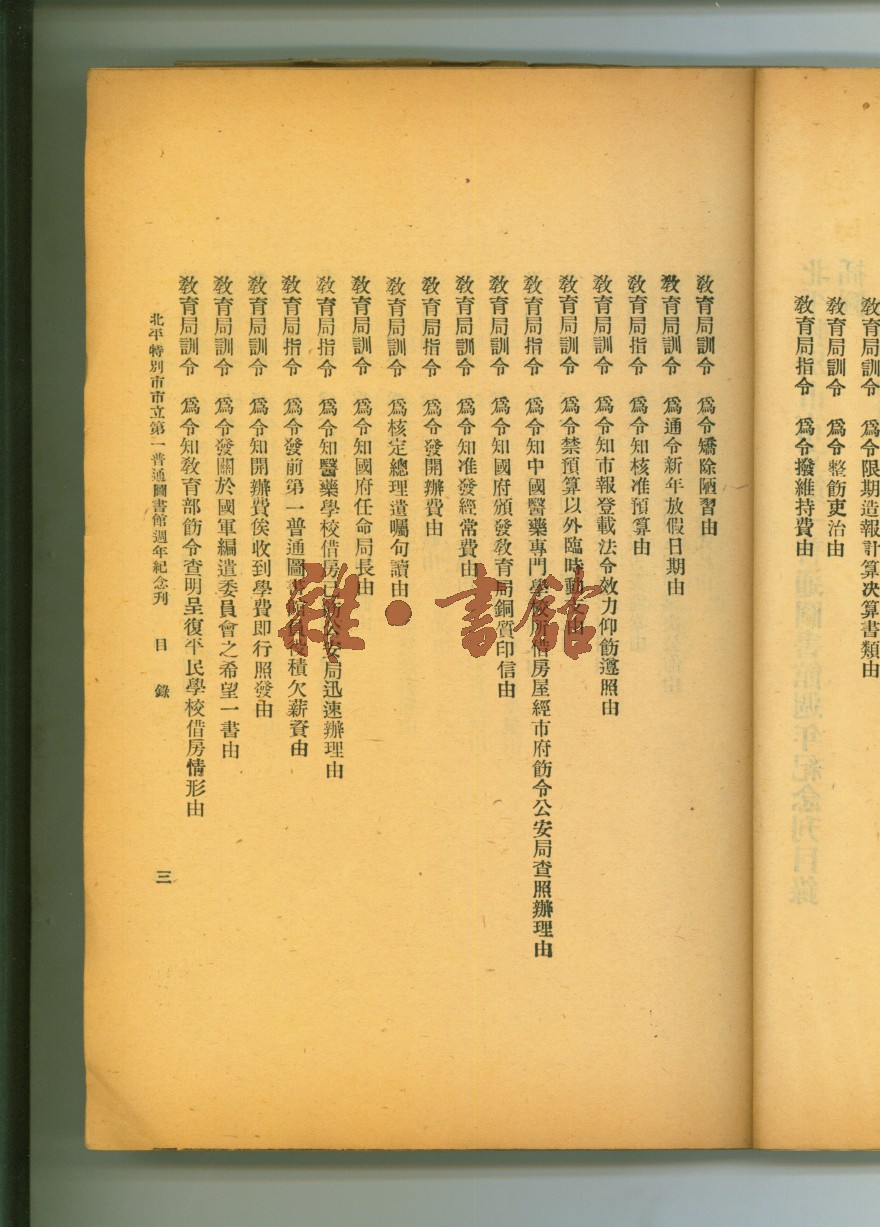 教育局訓令　爲令限期造報計算决算書類由
教育局訓令　爲令整飭吏治由
教育局指令　爲令撥維持費由
教育局訓令　爲令矯除陋習由
教育局訓令　爲通令新年放假日期由
教育局指令　爲令知核准預算由
教育局訓令　爲令知市報登載法令效力仰飭遵照由
教育局訓令　爲令禁預算以外臨時動支由
教育局指令　爲令知中國醫藥專門學校所借房屋經市府飭令公安局查照辦理由
教育局訓令　爲令知國府頒發教育局銅質印信由
教育局訓令　爲令知准發經常費由
教育局指令　爲令發開辦費由
教育局訓令　爲核定總理遺囑句讀由
教育局訓令　爲令知國府任命局長由
教育局指令　爲令知醫藥學校借房已飭公安局迅速辦理由
教育局指令　爲令發前第一普通圖書館員役積欠薪資由
教育局訓令　爲令知開辦費俟收到學費即行照發由
教育局訓令　爲令發關於國軍編遣委員會之希望一書由
教育局訓令　爲令知教育部飭令查明呈復平民學校借房情形由
北平特別市市立第一普通圖書館週年紀念刊　目錄　三
雜·書館